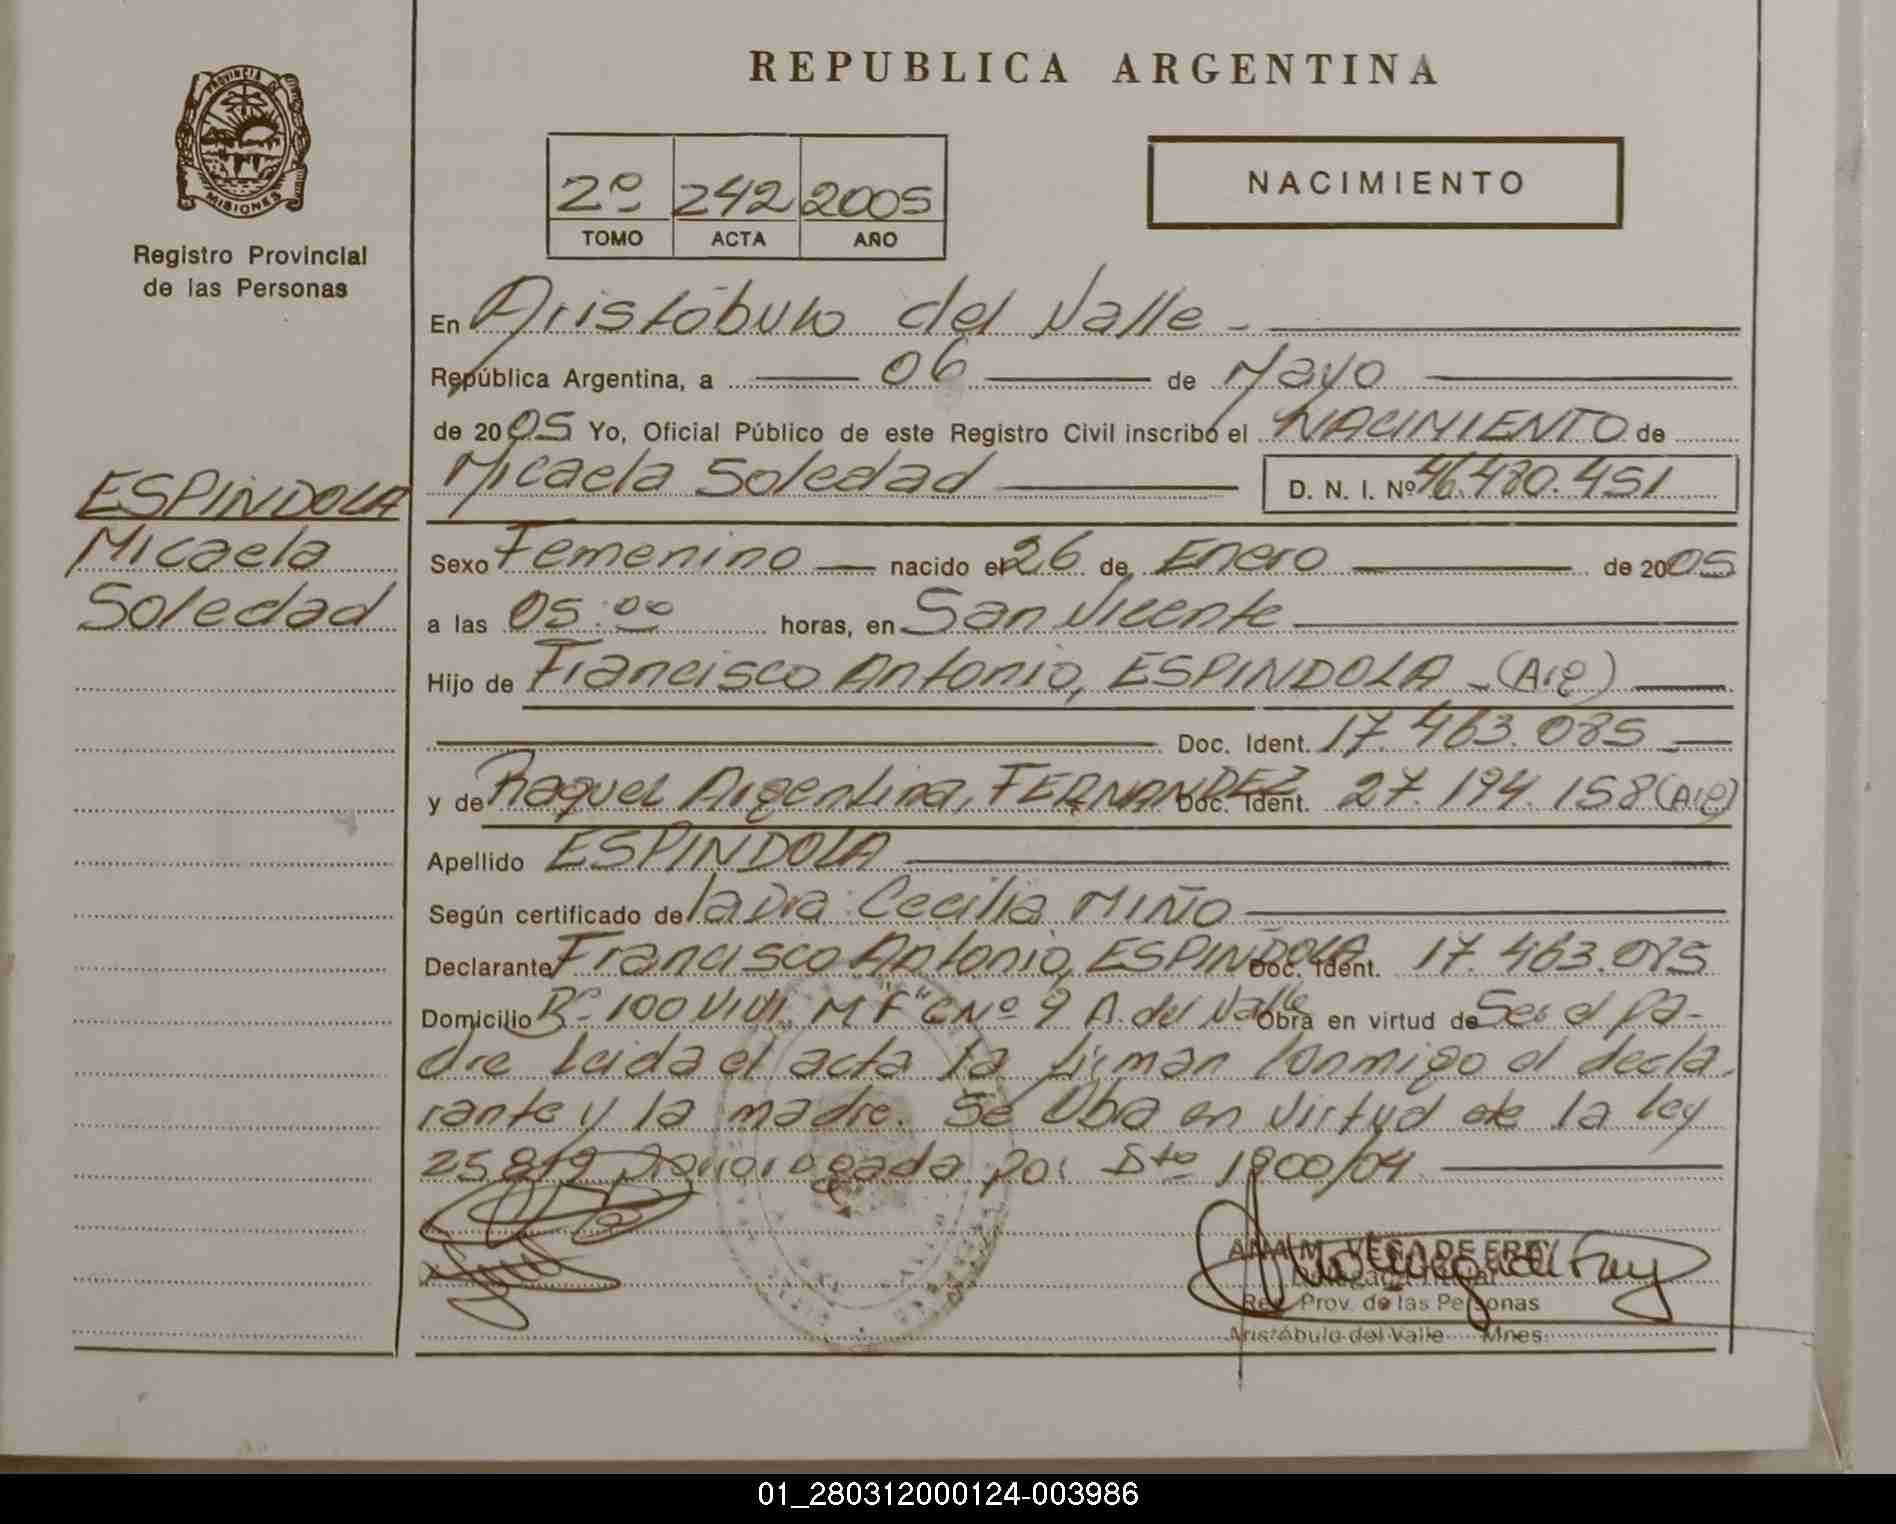 REPUBLICA ARGENTINA
PROVINCIA DE
MISIONES
Registro Provincial
de las Personas
2º 242 2005
TOMO ACTA AÑO
NACIMIENTO
En Aristóbulo del Valle -
República Argentina, a 06 de Mayo
de 2005 Yo, Oficial Público de este Registro Civil inscribo el NACIMIENTO de
Micaela Soledad D. N. I. Nº 46.480.451
ESPINDOLA
Micaela
Soledad
Sexo Femenino nacido el 26 de Enero de 2005
a las 05:00 horas, en San Vicente
Hijo de Francisco Antonio, ESPINDOLA - (Arg)
Doc. Ident. 17.463.085
y de Raquel Argentina, FERNANDEZ Doc. Ident. 27.194.158 (Arg)
Apellido ESPINDOLA
Según certificado de la Dra: Cecilia MIÑO
Declarante Francisco Antonio, ESPINDOLA Doc. Ident. 17.463.085
Domicilio Bº 100 Vivi. M "F" C Nº 9 A. del Valle Obra en virtud de Ser el pa-
dre leida el acta la firman conmigo el decla
rante y la madre. Se Obra en virtud de la ley
25.819 gada por Dto 1900/04.
ANA M. VEGA DE FREY
Delegada Titular
Reg. Prov. de las Personas
Aristóbulo del Valle Mnes.
01_280312000124-003986